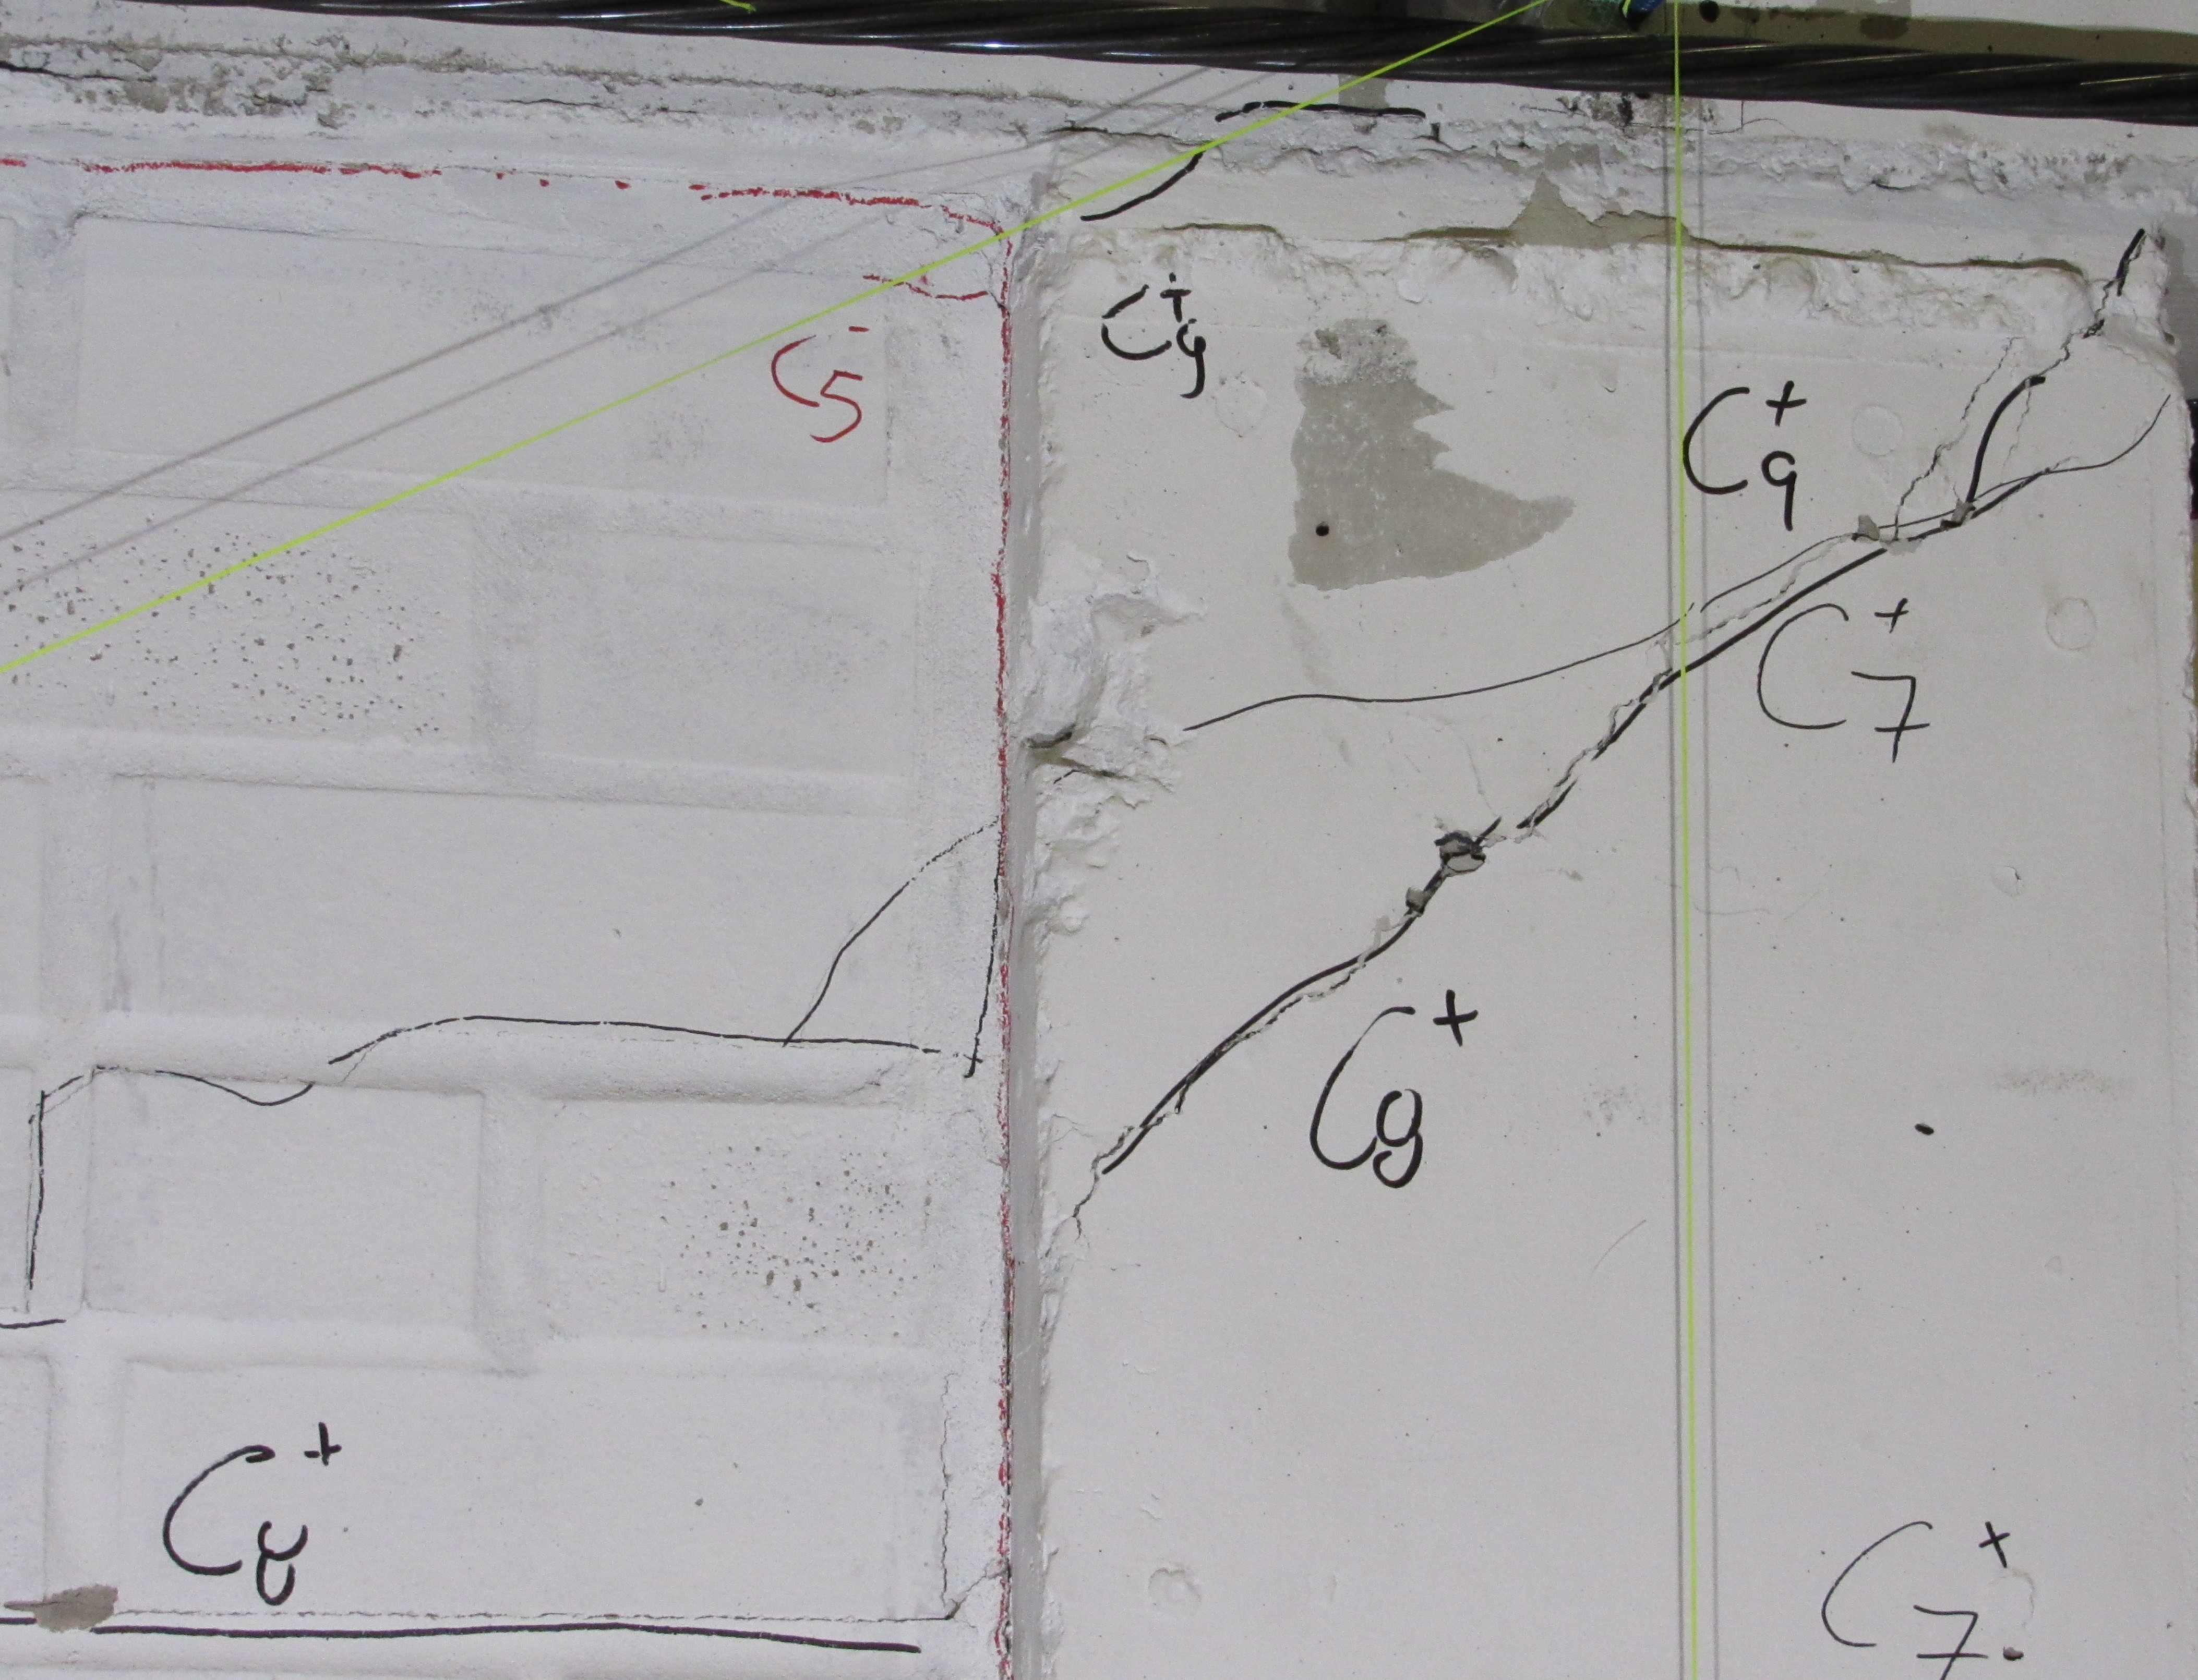 C5-
C9+
C9+
C7+
C9+
C8+
C7+